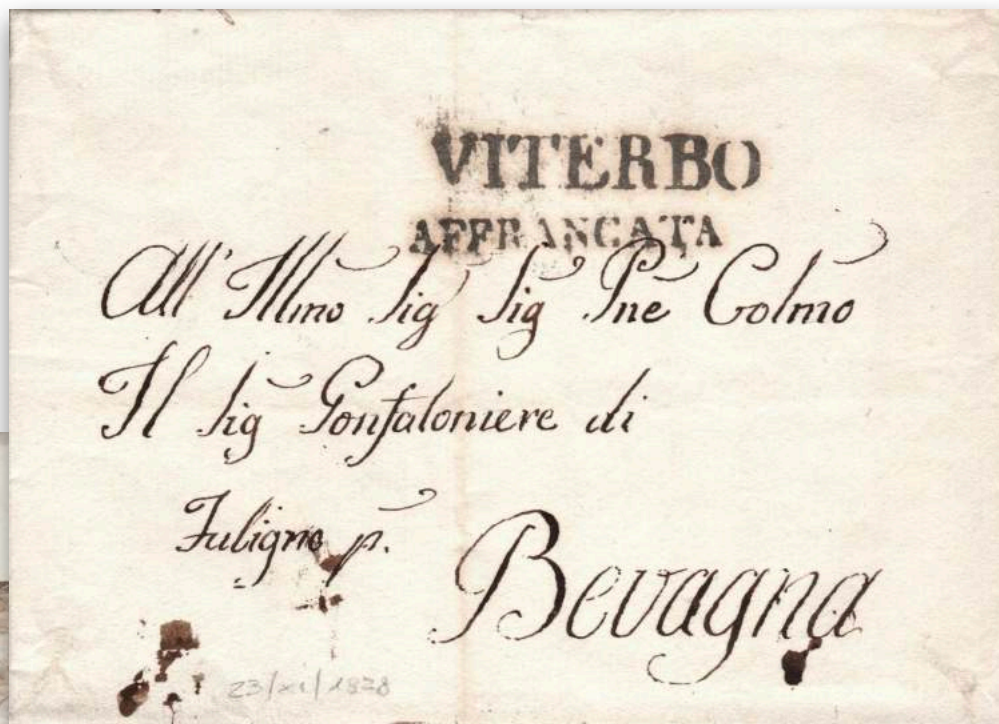 VITERBO
AFFRANCATA
All' Illmo Sig Sig Pne Colmo
Il Sig Gonfaloniere di
Fuligno p.
Bevagna
23/xi/1828